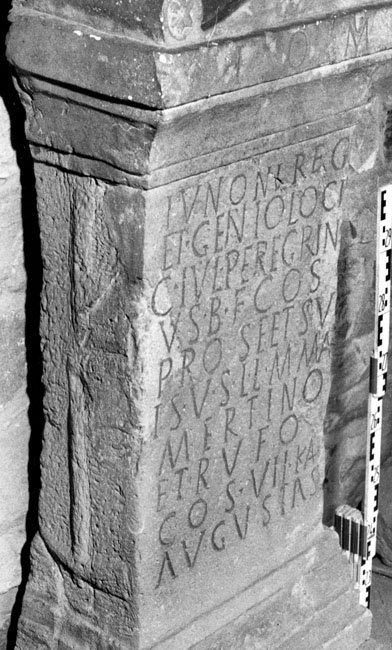 I O M
IVNONI REG
ET·GENIO LOCI
C·IVL PEREGRIN
VS B·F COS
PRO SE ET SV
IS V S LL M MA
MERTINO
ET RVFO
COS·VII·KA
AVGVSTAS